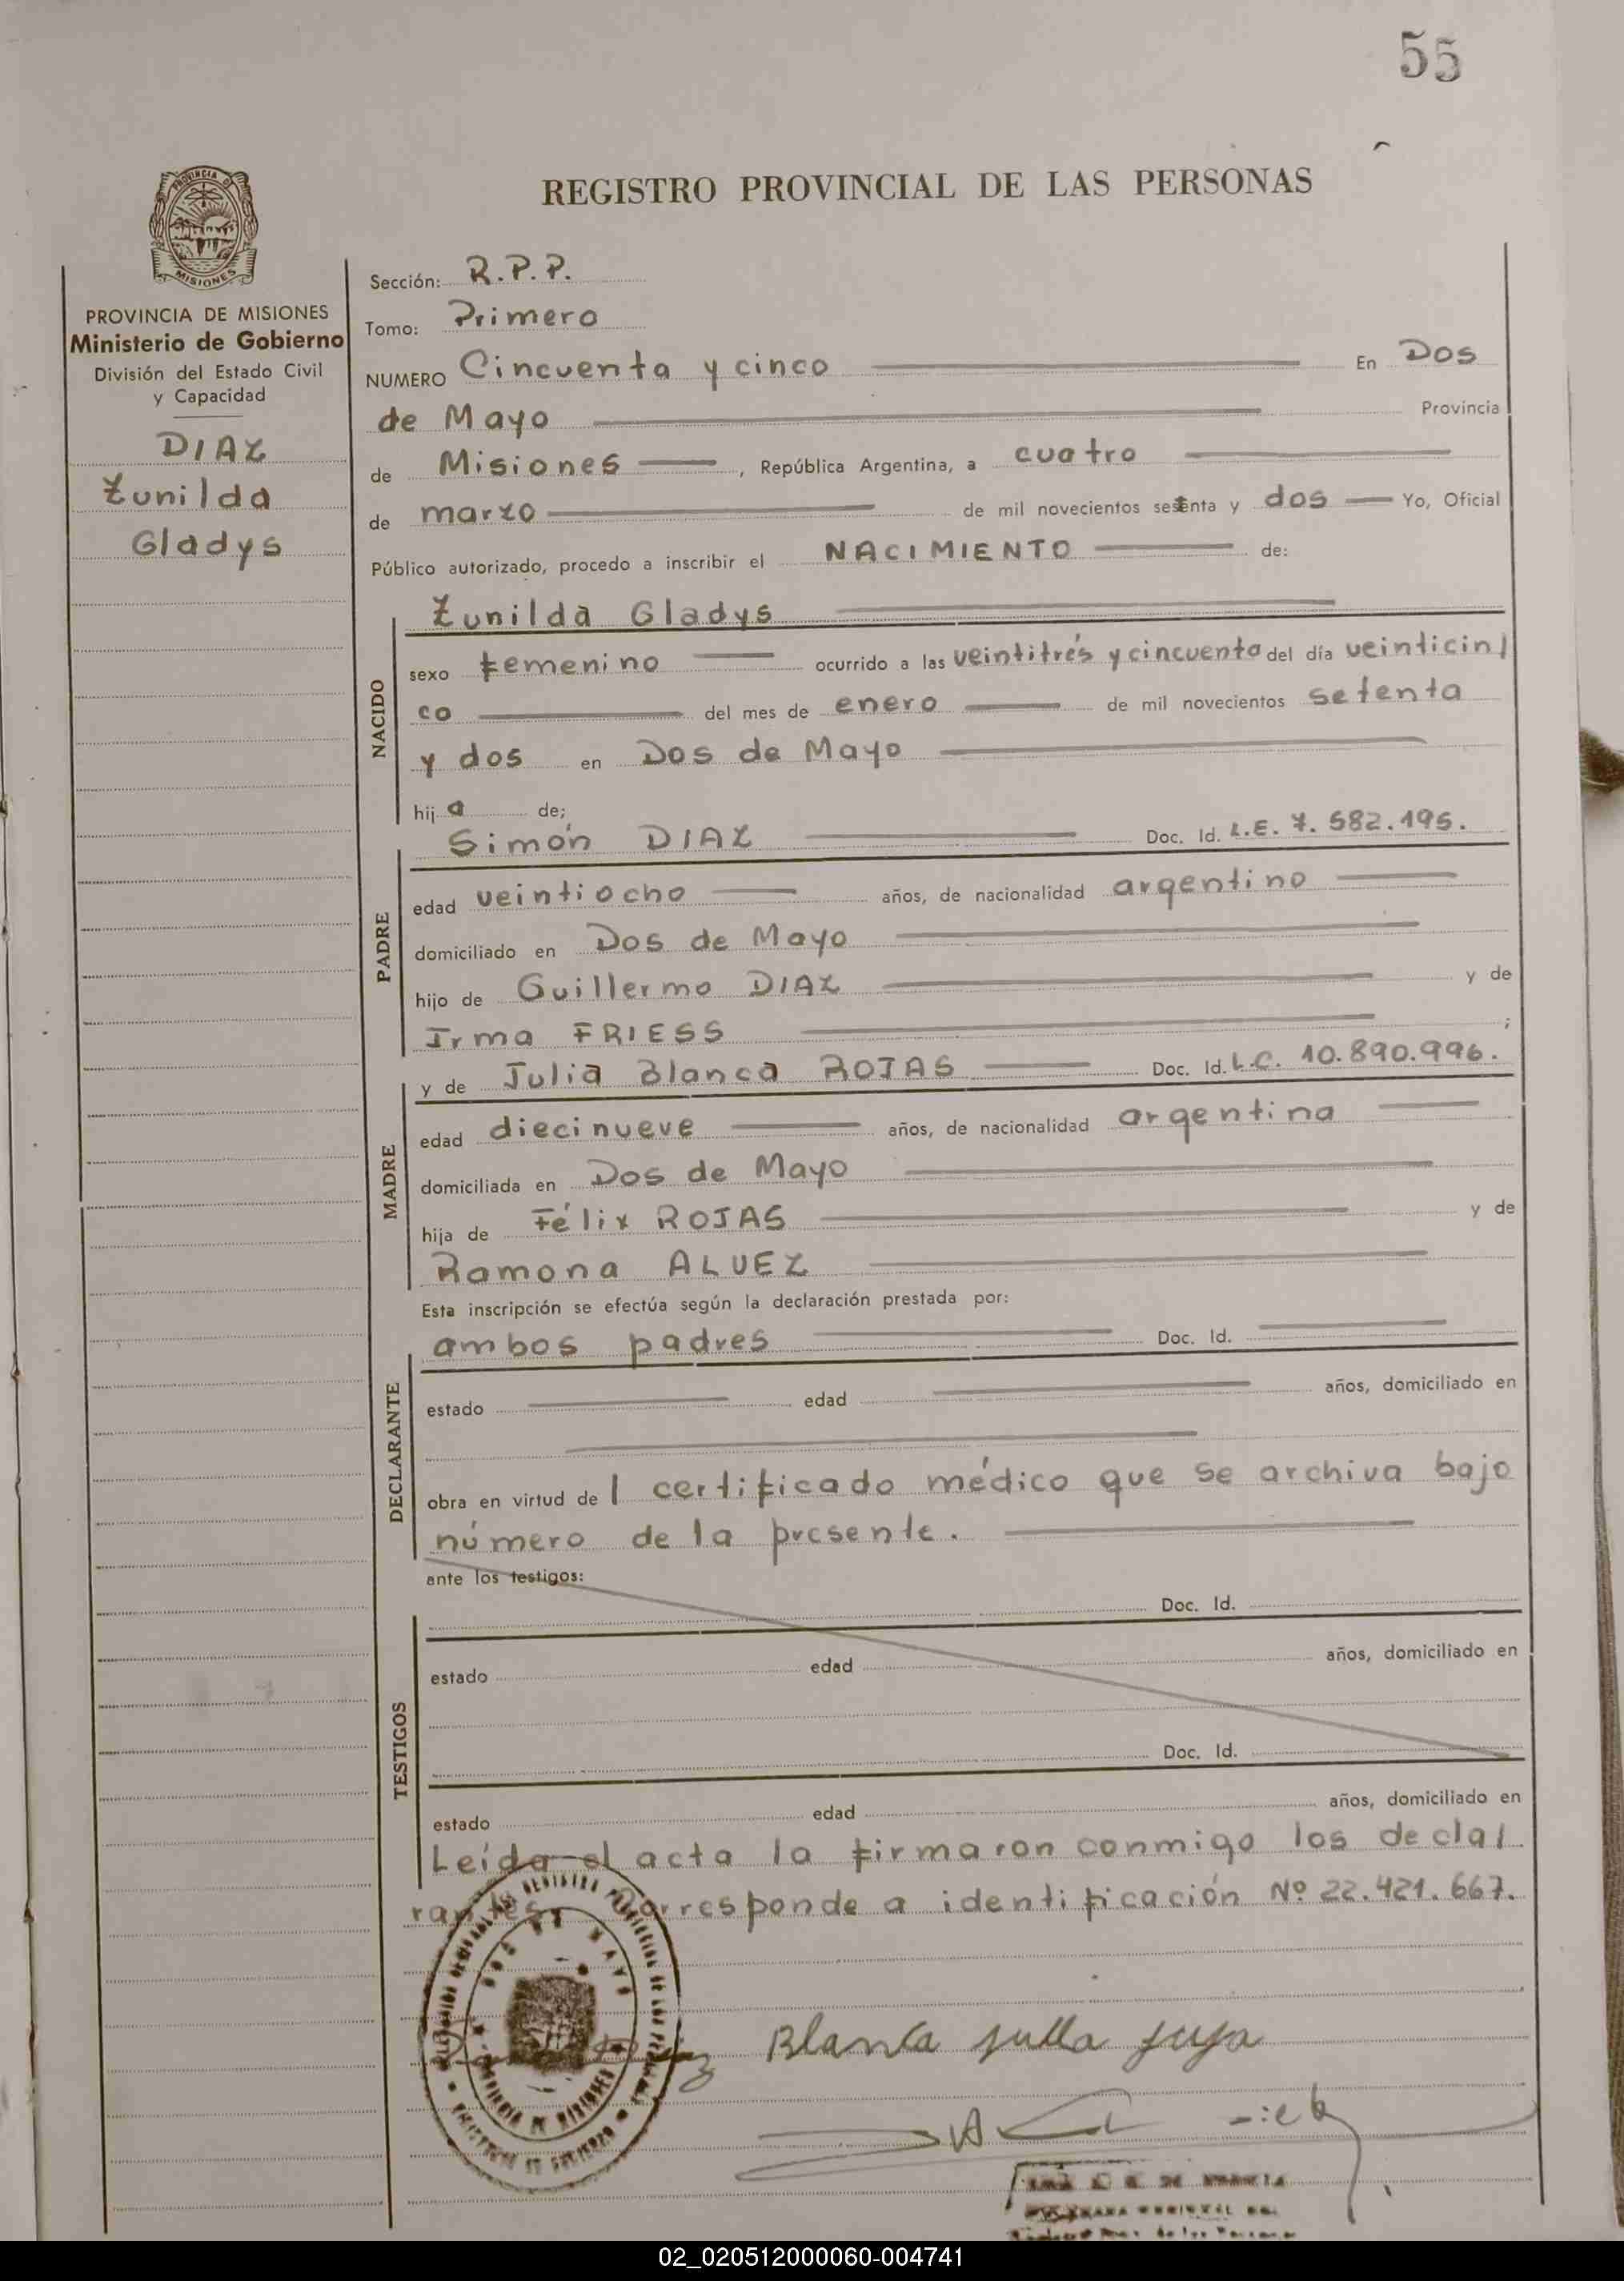 55
REGISTRO PROVINCIAL DE LAS PERSONAS
PROVINCIA DE MISIONES
Ministerio de Gobierno
División del Estado Civil
y Capacidad
DIAZ
Zunilda
Gladys
Sección: R.P.P.
Tomo: Primero
NUMERO Cincuenta y cinco En Dos
de Mayo Provincia
de Misiones, República Argentina, a cuatro
de marzo de mil novecientos setenta y dos Yo, Oficial
Público autorizado, procedo a inscribir el NACIMIENTO de:
NACIDO
Zunilda Gladys
sexo femenino ocurrido a las veintitrés y cincuenta del día veinticin/
co del mes de enero de mil novecientos setenta
y dos en Dos de Mayo
hija de;
PADRE
Simón DIAZ Doc. Id. L.E. 7.582.195.
edad veintiocho años, de nacionalidad argentino
domiciliado en Dos de Mayo
hijo de Guillermo DIAZ y de
Irma FRIESS ;
MADRE
y de Julia Blanca ROJAS Doc. Id. L.C. 10.890.996.
edad diecinueve años, de nacionalidad argentina
domiciliada en Dos de Mayo
hija de Félix ROJAS y de
Ramona ALVEZ
Esta inscripción se efectúa según la declaración prestada por:
DECLARANTE
ambos padres Doc. Id.
estado edad años, domiciliado en
obra en virtud de l certificado médico que se archiva bajo
número de la presente.
ante los testigos:
TESTIGOS
Doc. Id.
estado edad años, domiciliado en
Doc. Id.
estado edad años, domiciliado en
Leída el acta la firmaron conmigo los decla/
rantes. Corresponde a identificación Nº 22.421.667.
DOS DE MAYO
PROVINCIA DE MISIONES
Blanca
02_020512000060-004741